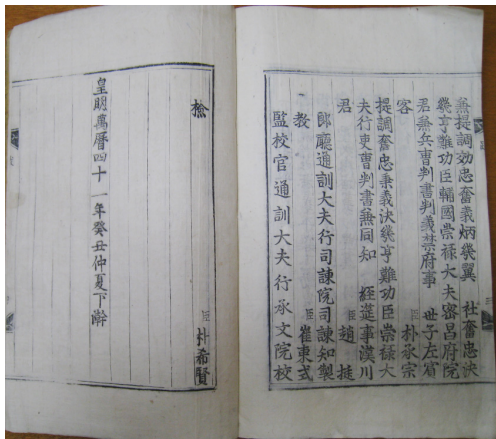 兼提調効忠奮義炳幾翼 社奮忠決
幾亨難功臣輔國崇祿大夫密昌府院
君兼兵曹判書判義禁府事 世子左賓
客 臣朴承宗
提調奮忠秉義決幾亨難功臣崇祿大
夫行吏曹判書兼同知 經筵事漢川
君 臣趙挺
郎廳通訓大夫行司諫院司諫知製
教 臣崔東式
監校官通訓大夫行承文院校
檢 臣朴希賢
皇明萬曆四十一年癸丑仲夏下澣